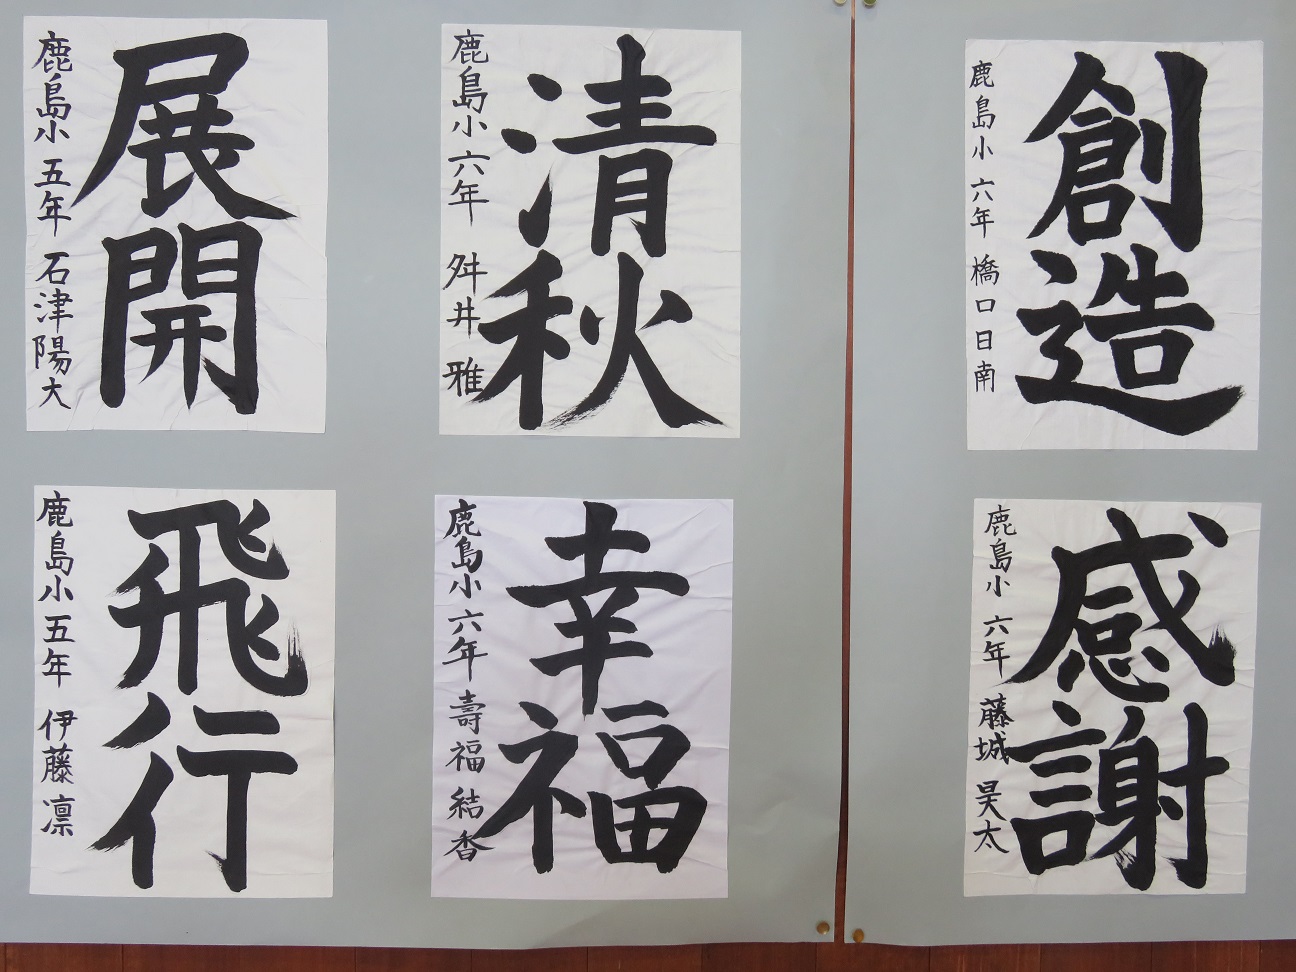 展開
鹿島小 五年 石津陽大
清秋
鹿島小 六年 舛井 雅
創造
鹿島小 六年 橋口日南
飛行
鹿島小 五年 伊藤凛
幸福
鹿島小 六年 壽福結香
感謝
鹿島小 六年 藤城昊太